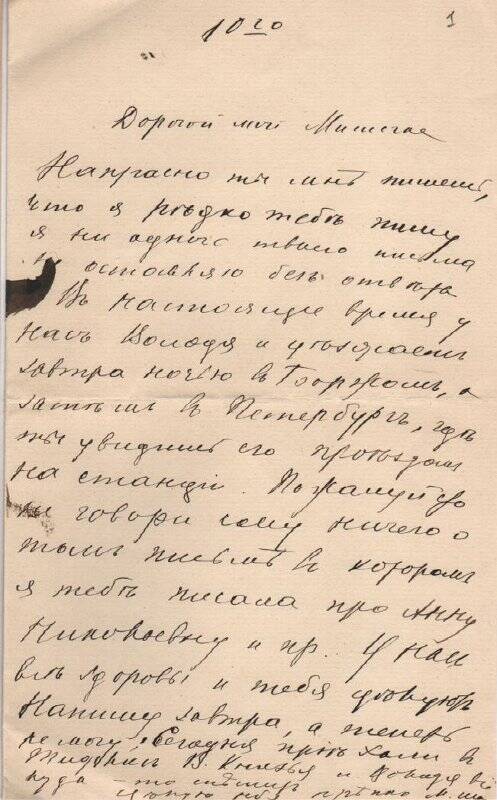 10го
1
Дорогой мой Мишечка
Напрасно ты мнѣ пишешь,
что я рѣдко тебѣ пишу
я ни одного твоего письма
не оставляю безъ отвѣта
Въ настоящее время у
насъ Володя и уѣзжаетъ
завтра ночью въ Боржомъ, а
затѣмъ въ Петербургъ, гдѣ
ты увидишь его проѣздом
на станціи. Пожалуйста
не говори ему ничего о
томъ письмѣ въ которомъ
я тебѣ писала про Анну
Николаевну и пр. У нас
всѣ здоровы и тебя цѣлуютъ
Напишу завтра, а теперь
не могу. Сегодня пріѣхали в
Князья и Володя
куда-то спѣшитъ